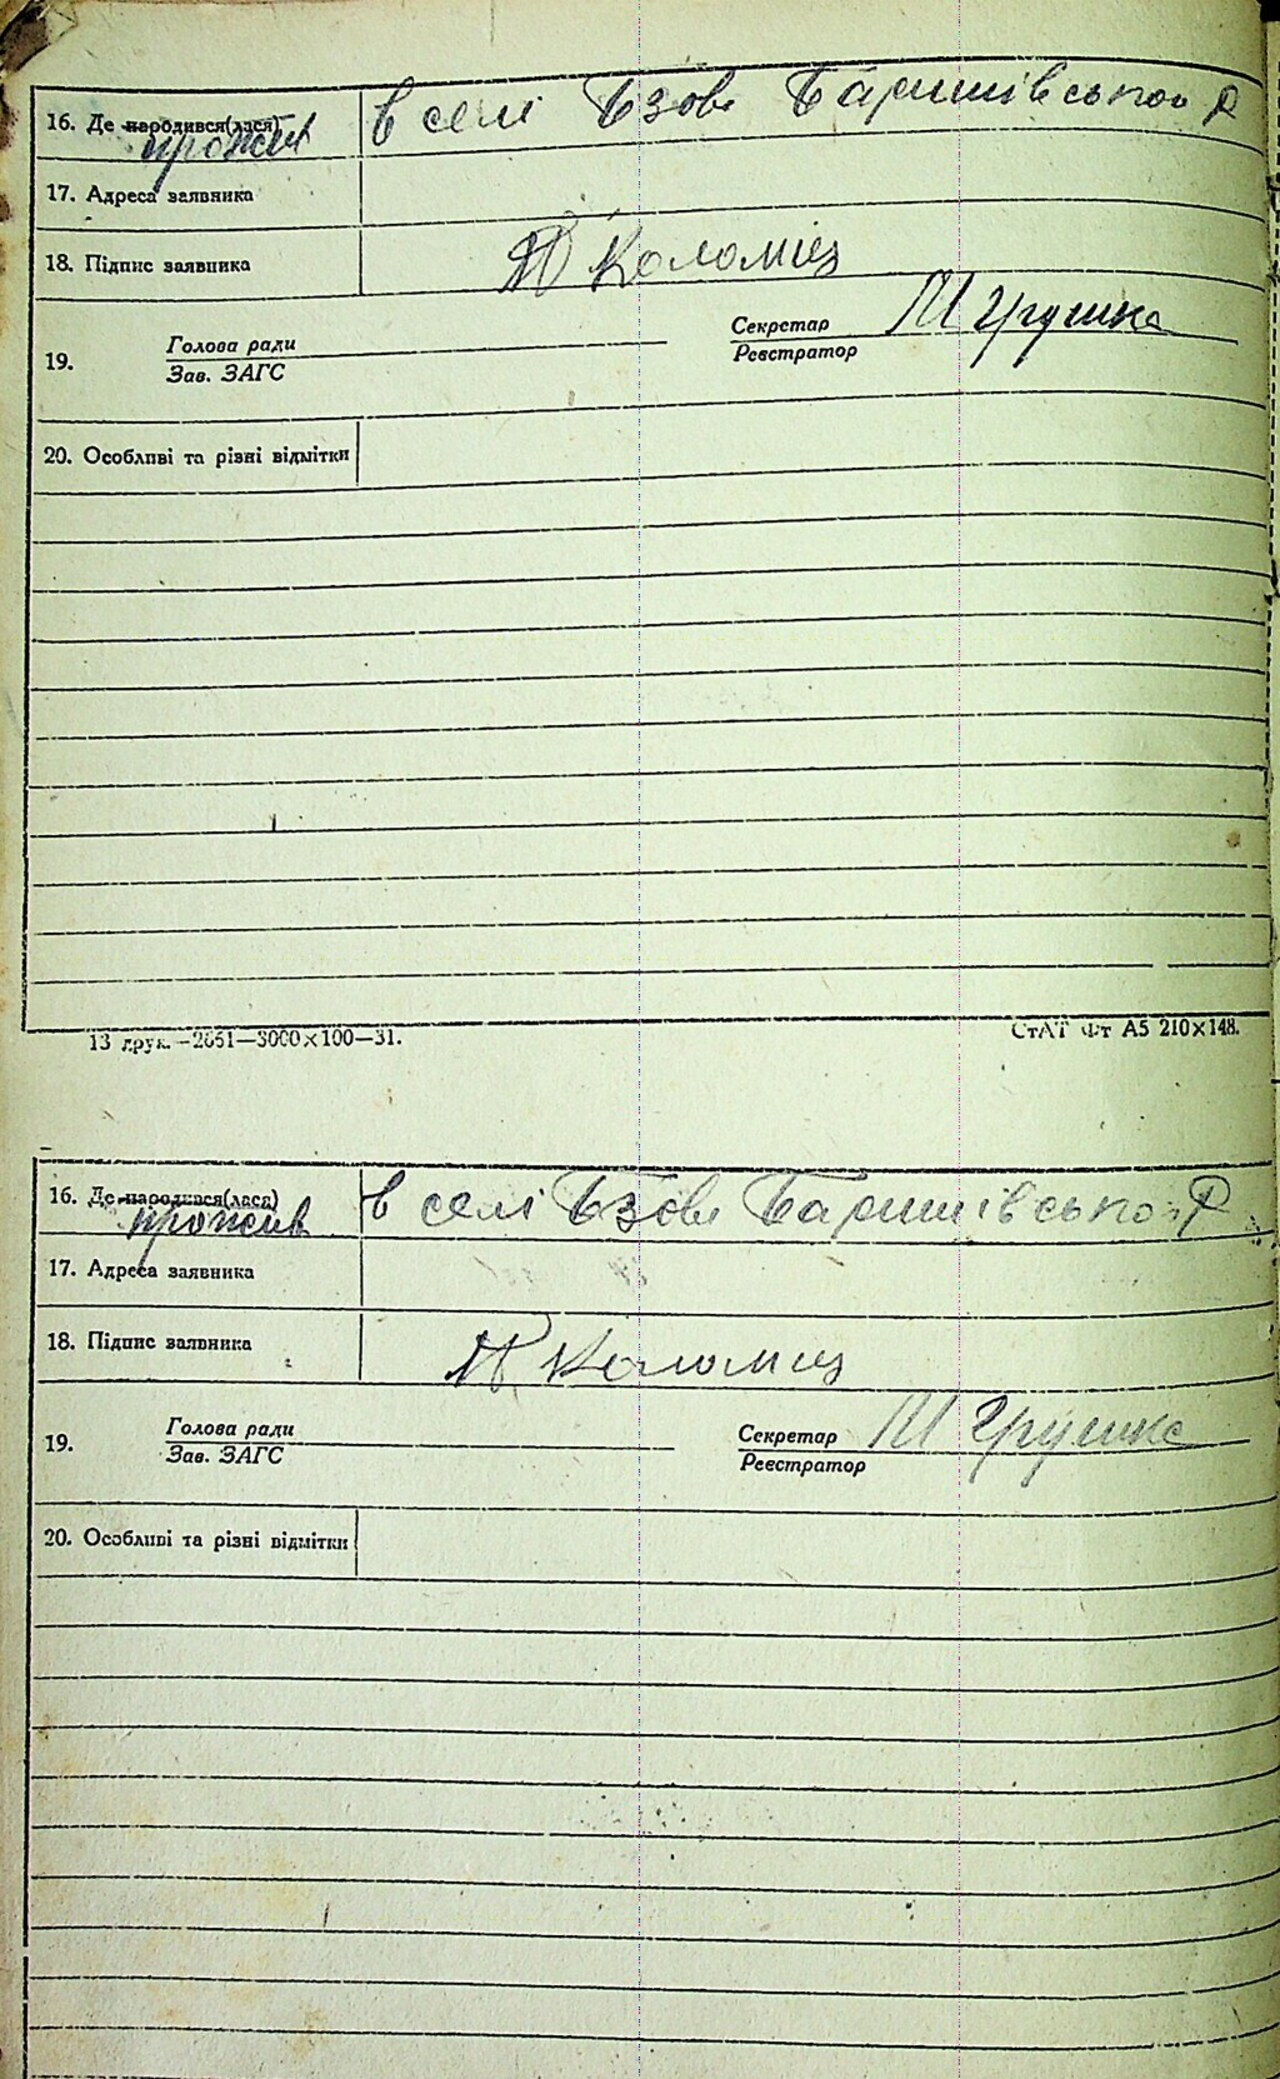 16. Де народився(лася) в селі Бзові Баришівського Р
прожив
17. Адреса заявника
18. Підпис заявника Коломієц
19. Голова ради Секретар М Грушка
Зав. ЗАГС Реєстратор
20. Особливі та різні відмітки
13 друк. —2651—3000×100—31. СтАТ Фт А5 210×148.
16. Де народився(лася) в селі Бзові Баришівсько Р
прожив
17. Адреса заявника
18. Підпис заявника Коломиец
19. Голова ради Секретар М Грушка
Зав. ЗАГС Реєстратор
20. Особливі та різні відмітки